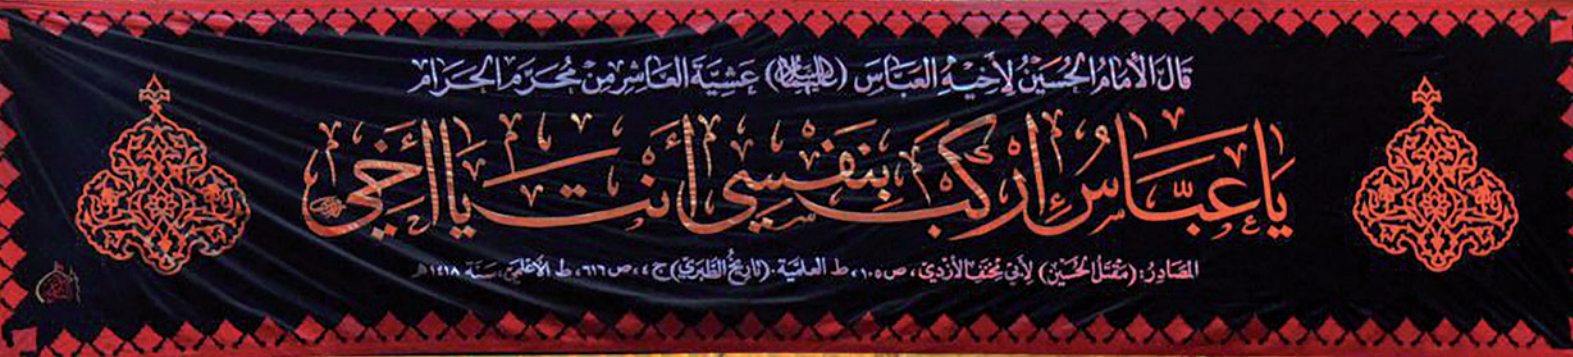 قَالَ الأمَامُ الحُسَيْنُ لِأَخِيْهِ العَبَّاسَ (عليهما السلام) عَشِيَّةَ العَاشِرِ مِنْ مُحَرَّمِ الحَرَامِ
يَا عَبَّاسُ إِرْكَبْ بِنَفْسِي أَنتَ يَا أَخِي
المَصَادِرُ: (مَقْتَلُ الحُسَيْنِ) لِأَبِي مِخْنَفِ الأَزْدِيّ، ص١٠٥، ط العلميّة. (تَارِيخُ الطَّبَرِيّ) ج٤، ص٦١٦، ط الأَعْلَمِيّ، سَنَة ١٤١٨هـ